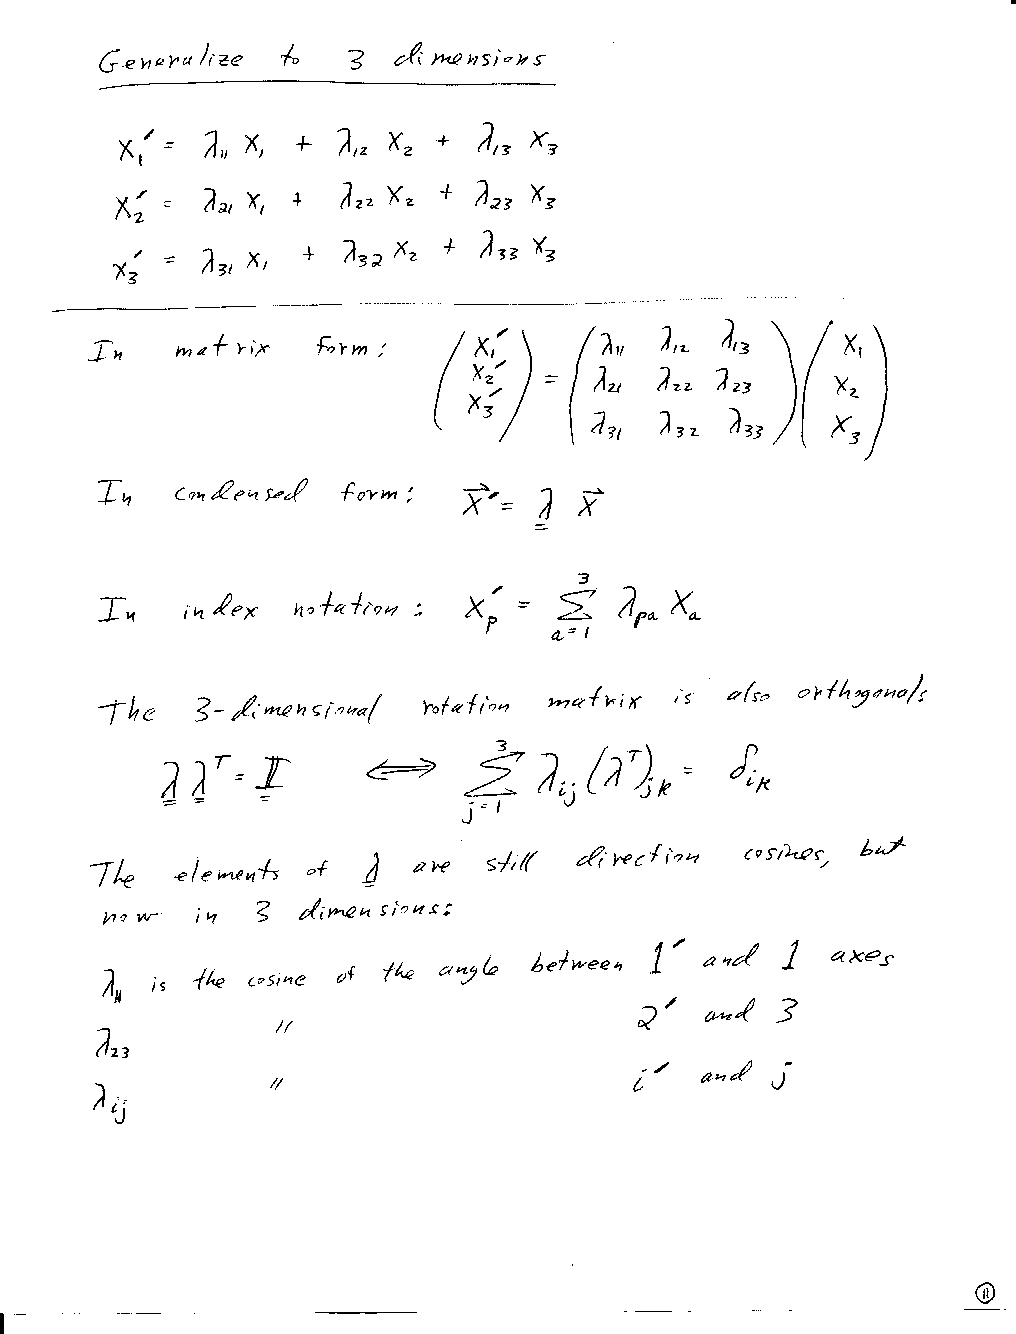 Generalize to 3 dimensions
x₁′ = λ₁₁ x₁ + λ₁₂ x₂ + λ₁₃ x₃
x₂′ = λ₂₁ x₁ + λ₂₂ x₂ + λ₂₃ x₃
x₃′ = λ₃₁ x₁ + λ₃₂ x₂ + λ₃₃ x₃
In matrix form: (x₁′ x₂′ x₃′) = (λ₁₁ λ₁₂ λ₁₃ λ₂₁ λ₂₂ λ₂₃ λ₃₁ λ₃₂ λ₃₃) (x₁ x₂ x₃)
In condensed form: x⃗′ = λ x⃗
In index notation: x′ₚ = Σ_{a=1}^{3} λ_{pa} x_a
The 3-dimensional rotation matrix is also orthogonal:
λ λᵀ = 𝕀 ⟺ Σ_{j=1}^{3} λ_{ij} (λᵀ)_{jk} = δ_{ik}
The elements of λ are still direction cosines, but
now in 3 dimensions:
λ₁₁ is the cosine of the angle between 1′ and 1 axes
λ₂₃ " 2′ and 3
λ_{ij} " i′ and j
11